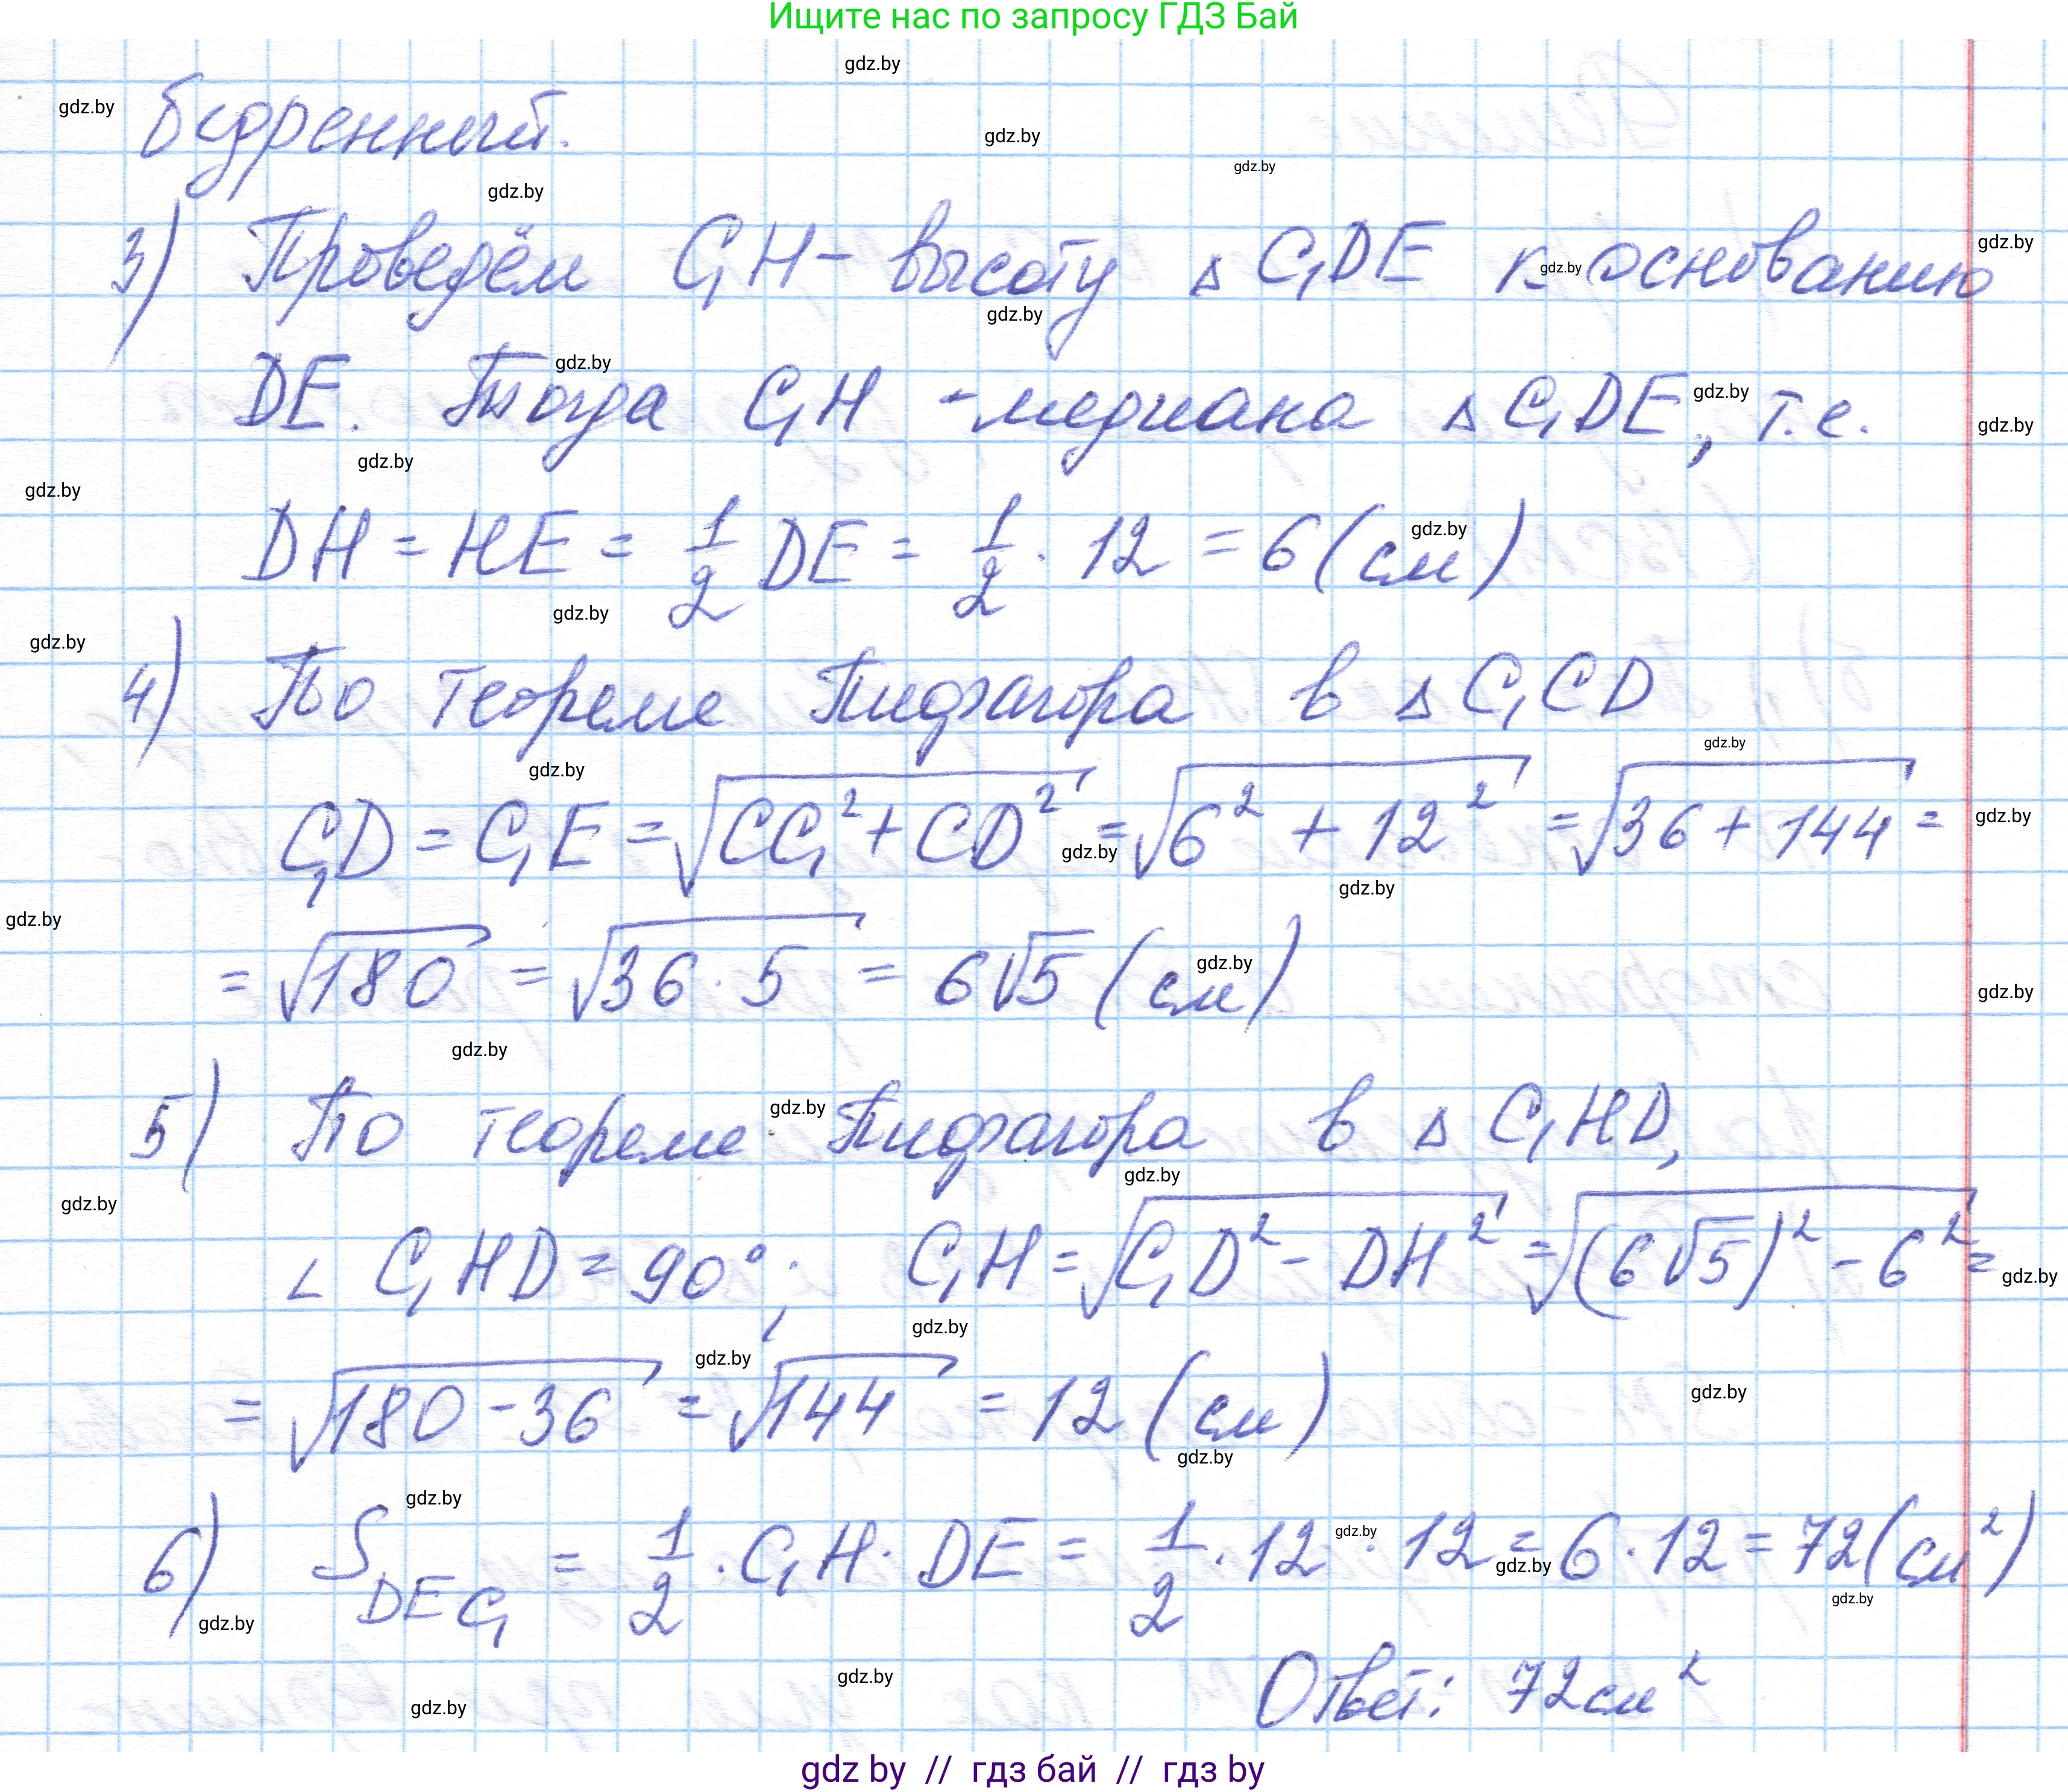 Ищите нас по запросу ГДЗ Бай
бедренный.
3) Проведём C₁H - высоту △ C₁DE к основанию
DE. Тогда C₁H - медиана △ C₁DE, т.е.
DH = HE = 1/2 DE = 1/2 · 12 = 6 (см)
4) По теореме Пифагора в △ C₁CD
C₁D = C₁E = √(CC₁² + CD²) = √(6² + 12²) = √(36 + 144) =
= √180 = √(36 · 5) = 6√5 (см)
5) По теореме Пифагора в △ C₁HD,
∠ C₁HD = 90°; C₁H = √(C₁D² - DH²) = √((6√5)² - 6²) =
= √(180 - 36) = √144 = 12 (см)
6) S DEC₁ = 1/2 · C₁H · DE = 1/2 · 12 · 12 = 6 · 12 = 72 (см²)
Ответ: 72 см²
gdz by // гдз бай // гдз by